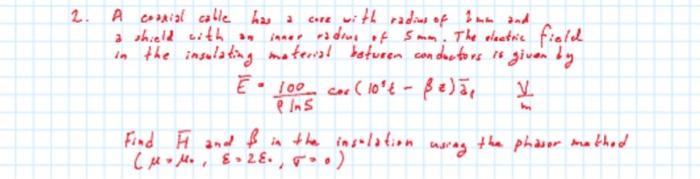 2. A coaxial cable has a core with radius of 1 mm and
a shield with an inner radius of 5 mm. The electric field
in the insulating material between conductors is given by
E̅ = 100 / ρ ln5 cos (10⁸t - βz) a̅ρ V/m
Find H̅ and β in the insulation using the phasor method
(μ = μ₀, ε = 2ε₀, σ = 0)